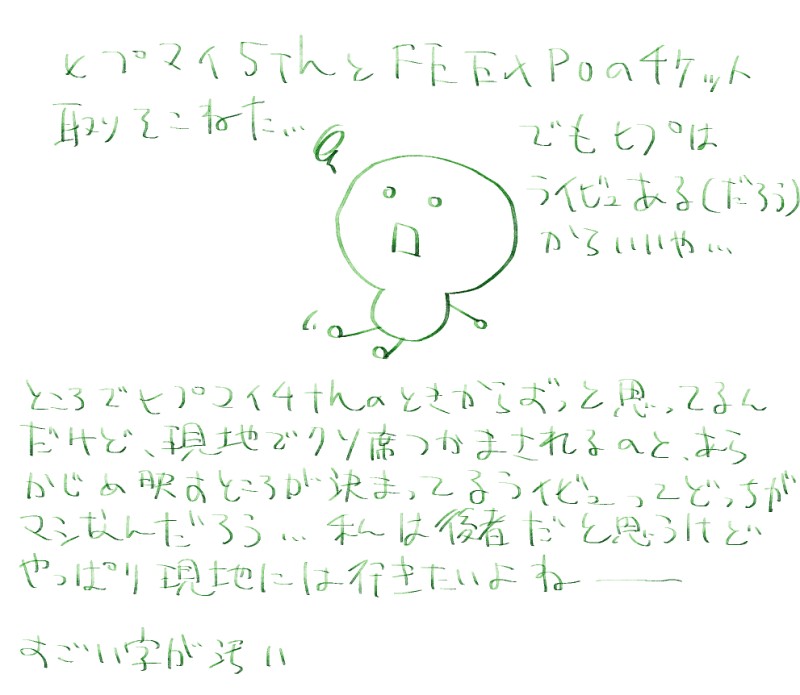 ヒプマイ5ThとFE EXPOのチケット
取りそこねた…
でもヒプは
ライビュある(だろう)
からいいや…
ところでヒプマイ4thのときからずっと思ってるん
だけど、現地でクソ席つかまされるのと、あら
かじめ映すところが決まってるライビュってどっちが
マシなんだろう…私は後者だと思うけど
やっぱり現地には行きたいよねー
すごい字が汚い